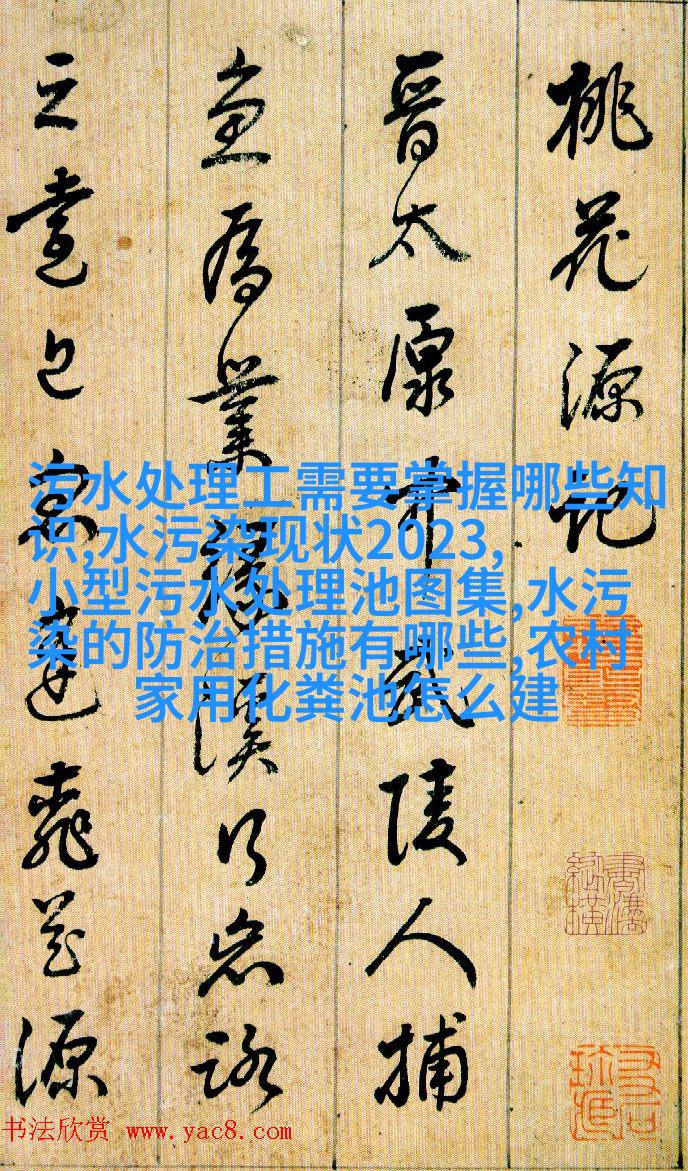 桃花源记
晋太原中武陵人捕
鱼為業缘溪行忘路
之
花源
污水处理工需要掌握哪些知
识,水污染现状2023,
小型污水处理池图集,水污
染的防治措施有哪些,农村
家用化粪池怎么建
书法欣赏 www.yac8.com